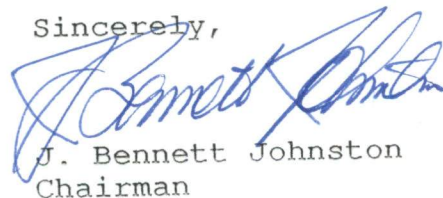 Sincerely,
J Bennett Johnston
J. Bennett Johnston
Chairman